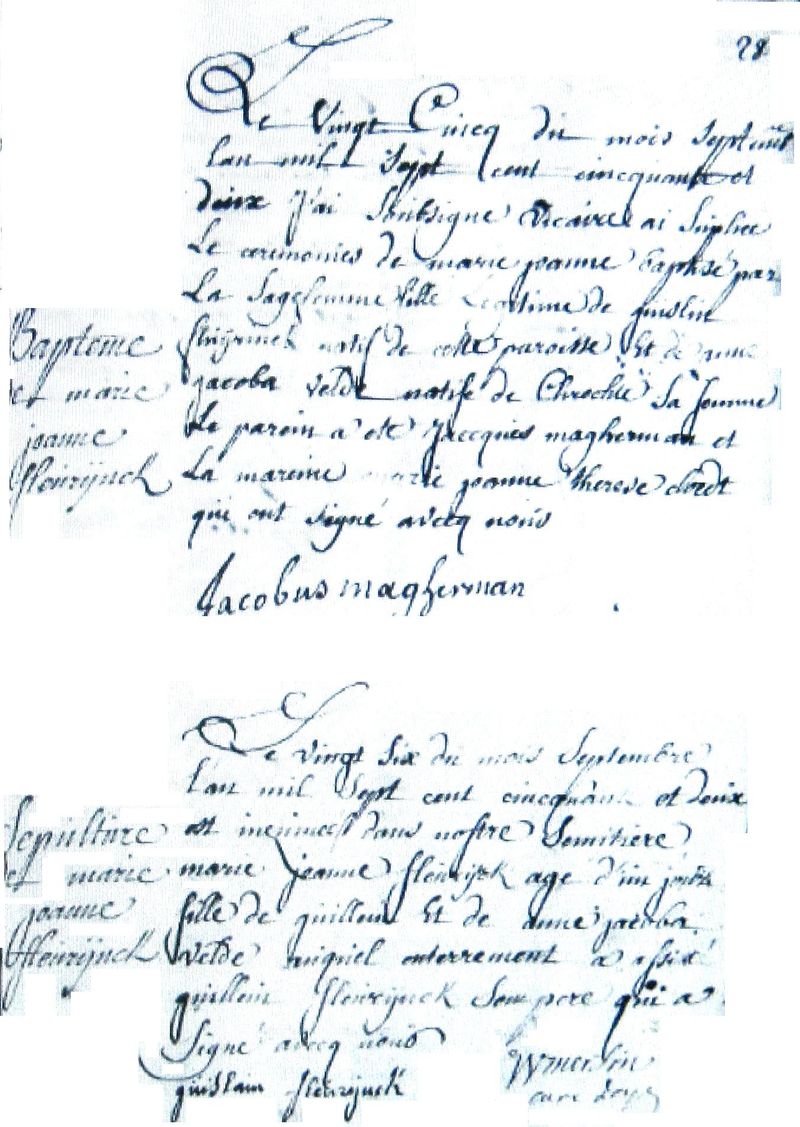 28
Le Vingt Cincq du mois Septembre
lan mil Sept cent cincquante et
deux J'ai Soubsigne vicaire ai Suplée
Le ceremonies de marie joanne baptisé par
La Sagefemme fille Legitime de guislin
fleurijnck natif de cette paroisse Et de anne
jacoba velde natife de Chrochte Sa femme
Le parein a eté Jacques magherman et
La mareine marie joanne therese
qui ont signé avecq nous
Jacobus magherman
Bapteme
et marie
joanne
fleurijnck
Le vingt six du mois Septembre
l'an mil Sept cent cincquante et deux
est inhumee dans nostre Semitiere
marie joanne fleurijck age d'un jour
fille de guillein Et de anne jacoba
velde auquel enterrement a assisté
guillein fleurijnck Son pere qui a
Signé avecq nous
guislain fleurijnck
curé
Sepulture
et marie
joanne
fleurijnck